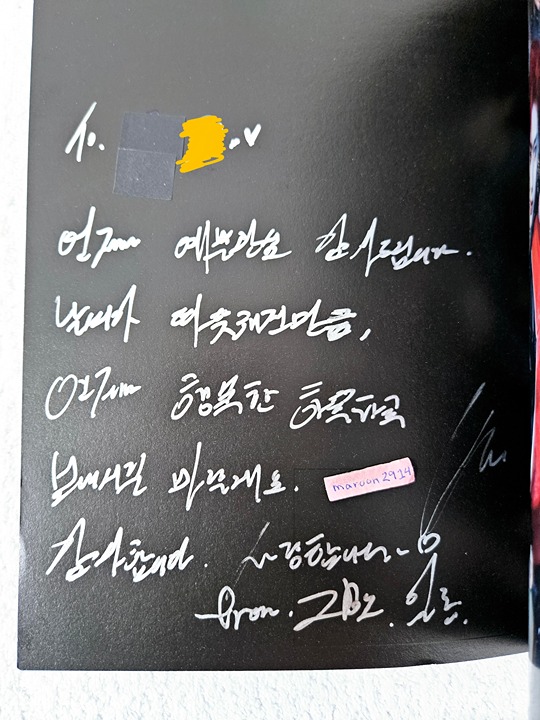 To. .♥
언제나 감사드립니다.
날씨가 따뜻해진만큼,
언제나 행복한 하루하루
보내시길 바랄게요.
maroon2914
감사합니다. 사랑합니다~
From. 일훈.